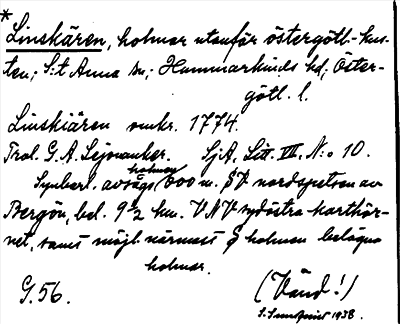 *
Linskären, holmar utanför östergötl. kus-
ten; S:t Anna sn; Hammarkinds hd; Öster-
götl. l.
Linskiären omkr. 1774.
Trol. G. A. Lejonanker. SjA, Litt. VII, N:o 10.
holmen
Symbol. avsågs 800 m. SV nordspetsen av
Bergön, bel. 9 1/2 km. VNV sydöstra karthör-
net, samt möjl. närmast S holmen belägna
holmar.
G. 56. (Vänd!)
1938.